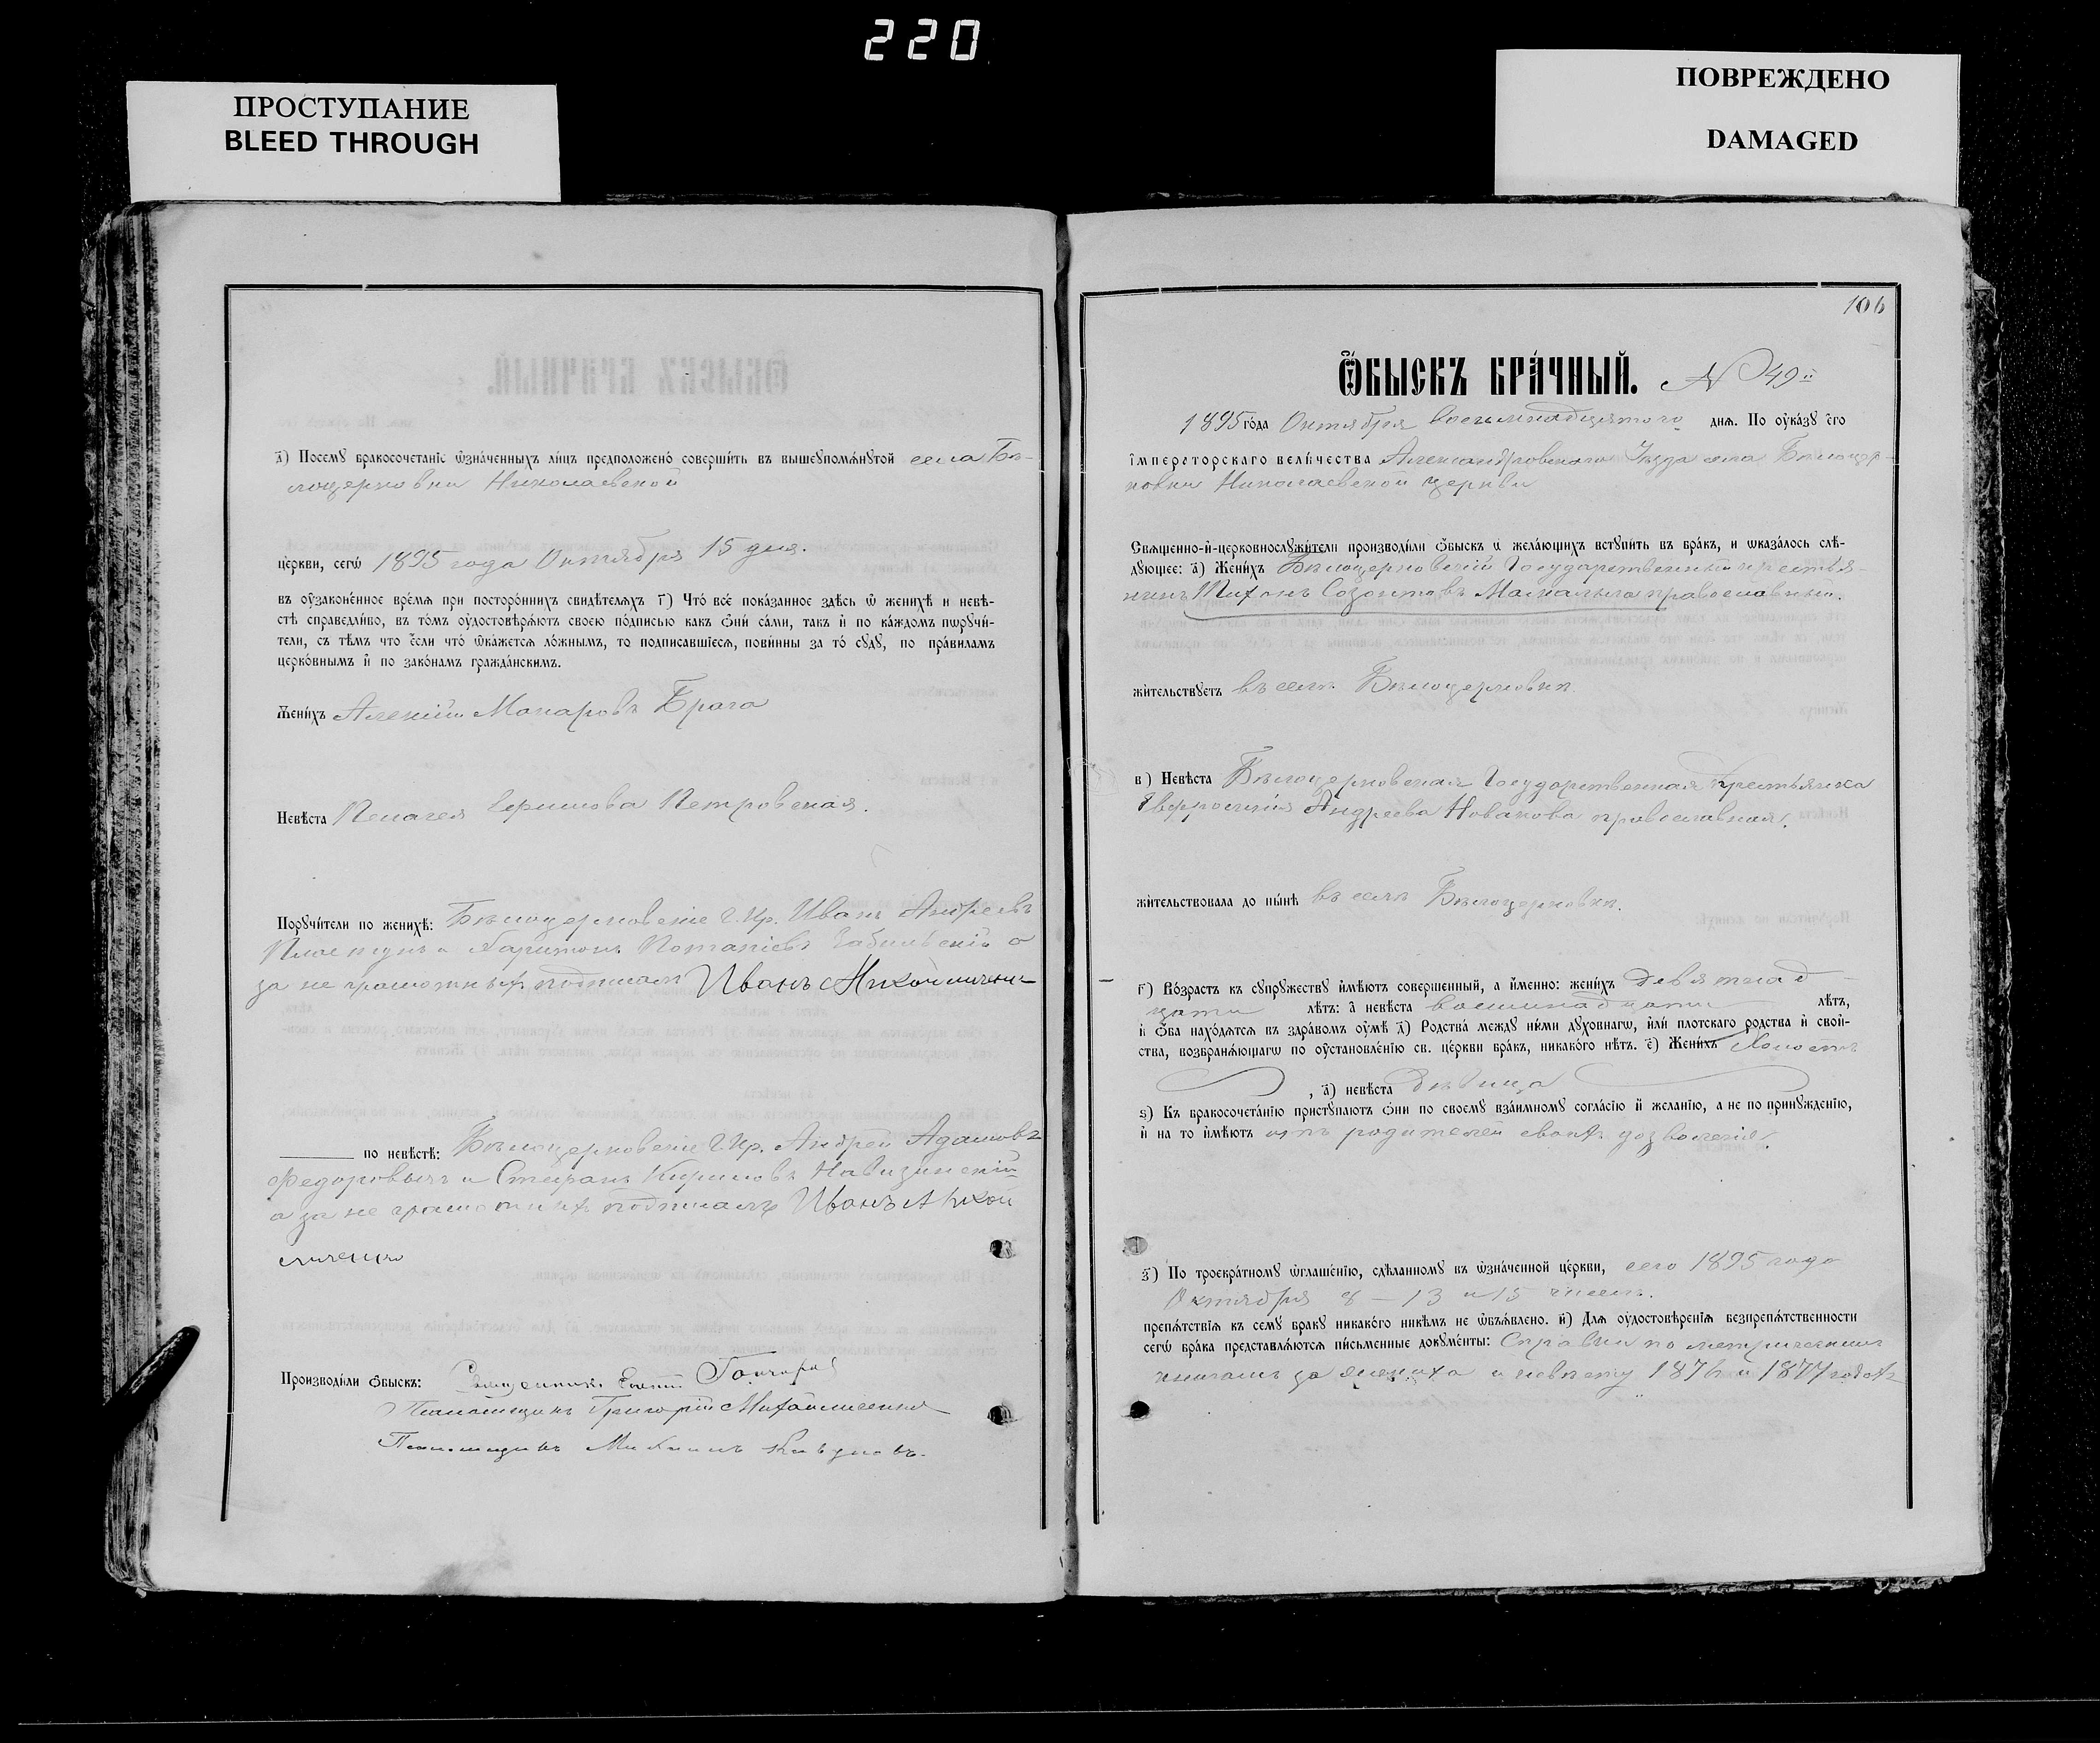 220
ПРОСТУПАНИЕ
BLEED THROUGH
ПОВРЕЖДЕНО
DAMAGED
д҃) Посемꙋ бракосочетаніе ѡ҆зна́ченныхъ ли́цъ предположено̀ соверши́ть въ вышеꙋпомѧ́нꙋтой села Бѣ-
лоцерковки Николаевской
це́ркви, сегѡ̀ 1895 года Октября 15 дня.
въ ᲂу҆законе́нное вре́мѧ при посторо́ннихъ свидѣ́телѧхъ г҃) Что̀ всѐ пока́занное здѣ́сь ѡ҆ женихѣ̀ и невѣ́-
стѣ справедли́во, въ то́мъ ᲂу҆достовѣрѧ́ютъ своею по́дписью какъ ѻ҆нѝ са́ми, такъ и҆ по ка́ждомъ порꙋчи́-
тели, съ тѣ́мъ что е҆́сли что̀ ѿка́жетсѧ ло́жнымъ, то подписавшіесѧ, пови́нны за то̀ сꙋдꙋ̀, по пра́виламъ
церко́внымъ и҆ по зако́намъ гражда́нскимъ.
Жени́хъ Алексій Макаровъ Брага
Невѣ́ста Пелагея Ефимова Петровская.
Порꙋчи́тели по женихѣ̀: Бѣлоцерковскіе Г. Кр. Иванъ Андреевъ
Пластунъ и Харитонъ Потапіевъ а
за не грамотныхъ подписалъ Иванъ
по невѣ́стѣ: Бѣлоцерковскіе Г. Кр. Андрей Адамовъ
Федоровычъ и Стефанъ Кириловъ
а за не грамотныхъ подписалъ Иванъ
Производи́ли ѻ҆́быскъ: Священникъ Гончаровъ
Псаломщикъ Григорій Михайличенко
Псаломщикъ Михаилъ
106
Ѻ҆́БЫСКЪ БРА́ЧНЫЙ. № 49й
1895 го́да Октября восемнадцятого днѧ. По ᲂу҆ка́зꙋ є҆гѡ̀
і҆мператорскагѡ вели́чества Александровскаго Уѣзда села Бѣлоцер-
ковки Николаевской церкви
Свѧщенно-и҆-церковнослꙋжи́тели производи́ли ѻ҆́быскъ ѡ҆ жела́ющихъ встꙋпи́ть въ бра́къ, и ѡ҆каза́лось слѣ́-
дꙋющее: а҃) Жени́хъ Бѣлоцерковскій Государственный крестья-
нинъ Тихонъ Созонтовъ православный.
жи́тельствꙋетъ въ селѣ Бѣлоцерковкѣ.
в҃) Невѣ́ста Бѣлоцерковская Государственная Крестьянка
Евфросинія Андреева Новакова православная.
жи́тельствовала до ны́нѣ въ селѣ Бѣлоцерковкѣ.
г҃) Во́зрастъ къ сꙋпрꙋ́жествꙋ и҆мѣ́ютъ соверше́нный, а и҆́менно: жени́хъ девятнад-
цати лѣ́тъ: а҆ невѣ́ста восемнадцати лѣ́тъ,
и҆ ѻ҆́ба нахо́дѧтсѧ въ здра́вомъ ᲂу҆мѣ̀ д҃) Родства̀ междꙋ ни́ми дꙋхо́внагѡ, и҆лѝ пло́тскаго родства̀ и҆ свой-
ства̀, возбранѧ́ющагѡ по ᲂу҆становле́нію св. це́ркви бра́къ, никако́го нѣ́тъ. є҃) Жени́хъ Холостъ
, а҆) невѣ́ста Дѣвица
ѕ҃) Къ бракосочета́нію пристꙋпа́ютъ ѻ҆нѝ по своемꙋ̀ взаи́мномꙋ согла́сію и҆ жела́нію, а не по принꙋжде́нію,
и҆ на то и҆мѣ́ютъ отъ родителей своихъ дозволенія.
з҃) По троекра́тномꙋ ѡ҆глаше́нію, сдѣ́ланномꙋ въ ѡ҆зна́ченной це́ркви, сего 1895 года
Октября 8 – 13 и 15 чиселъ.
препѧ́тствїѧ къ семꙋ̀ бракꙋ̀ никако́го никѣ́мъ не ѡ҆бъѧ́влено. и҃) Длѧ ᲂу҆достовѣ́ренїѧ безпрепѧ́тственности
сегѡ̀ бра́ка представлѧ́ютсѧ пи́сьменные докꙋме́нты: Справки по метрическимъ
книгамъ за жениха и невѣсту 1876 и 1877 годахъ